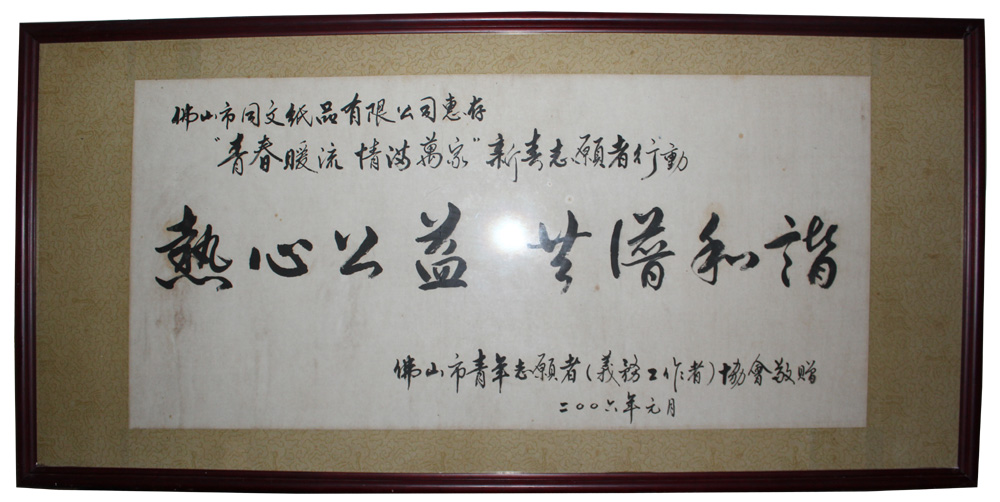 佛山市同文紙品有限公司惠存
"青春暖流 情滿萬家"新春志願者行動
熱心公益 共譜和諧
佛山市青年志願者(義務工作者)協會敬贈
二〇〇六年元月